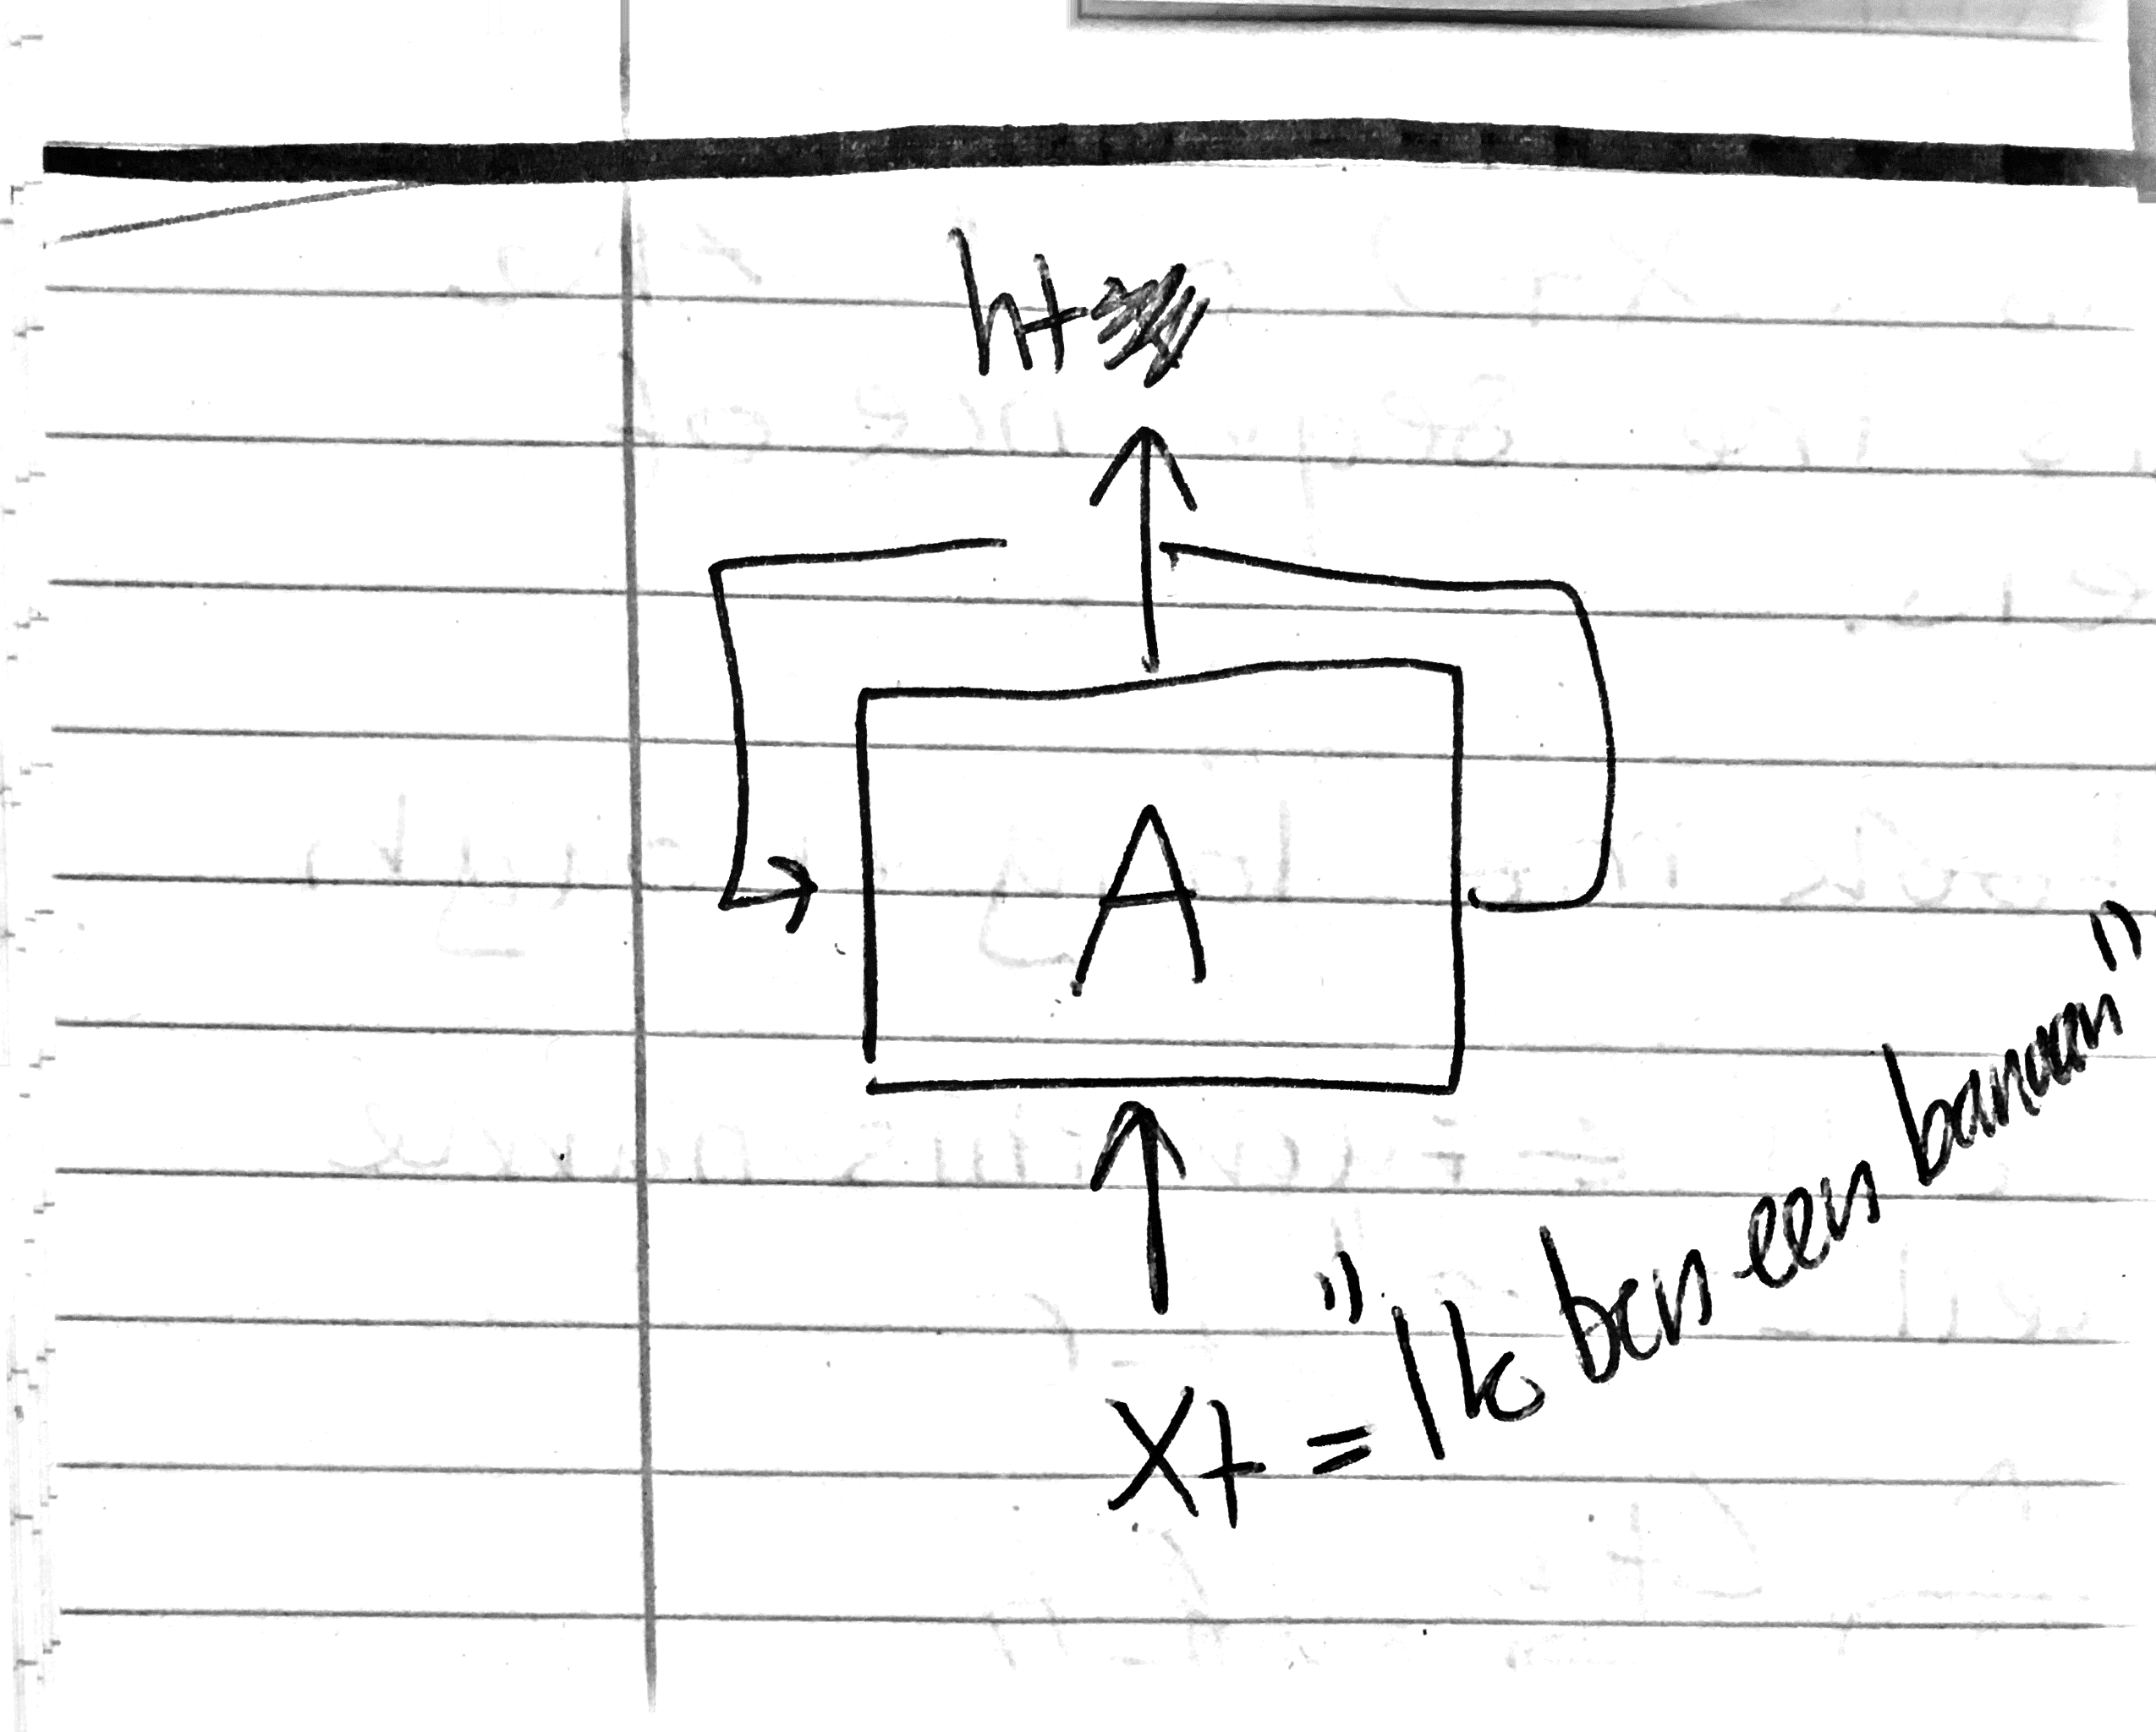 ht
A
xt = "Ik ben een banaan"